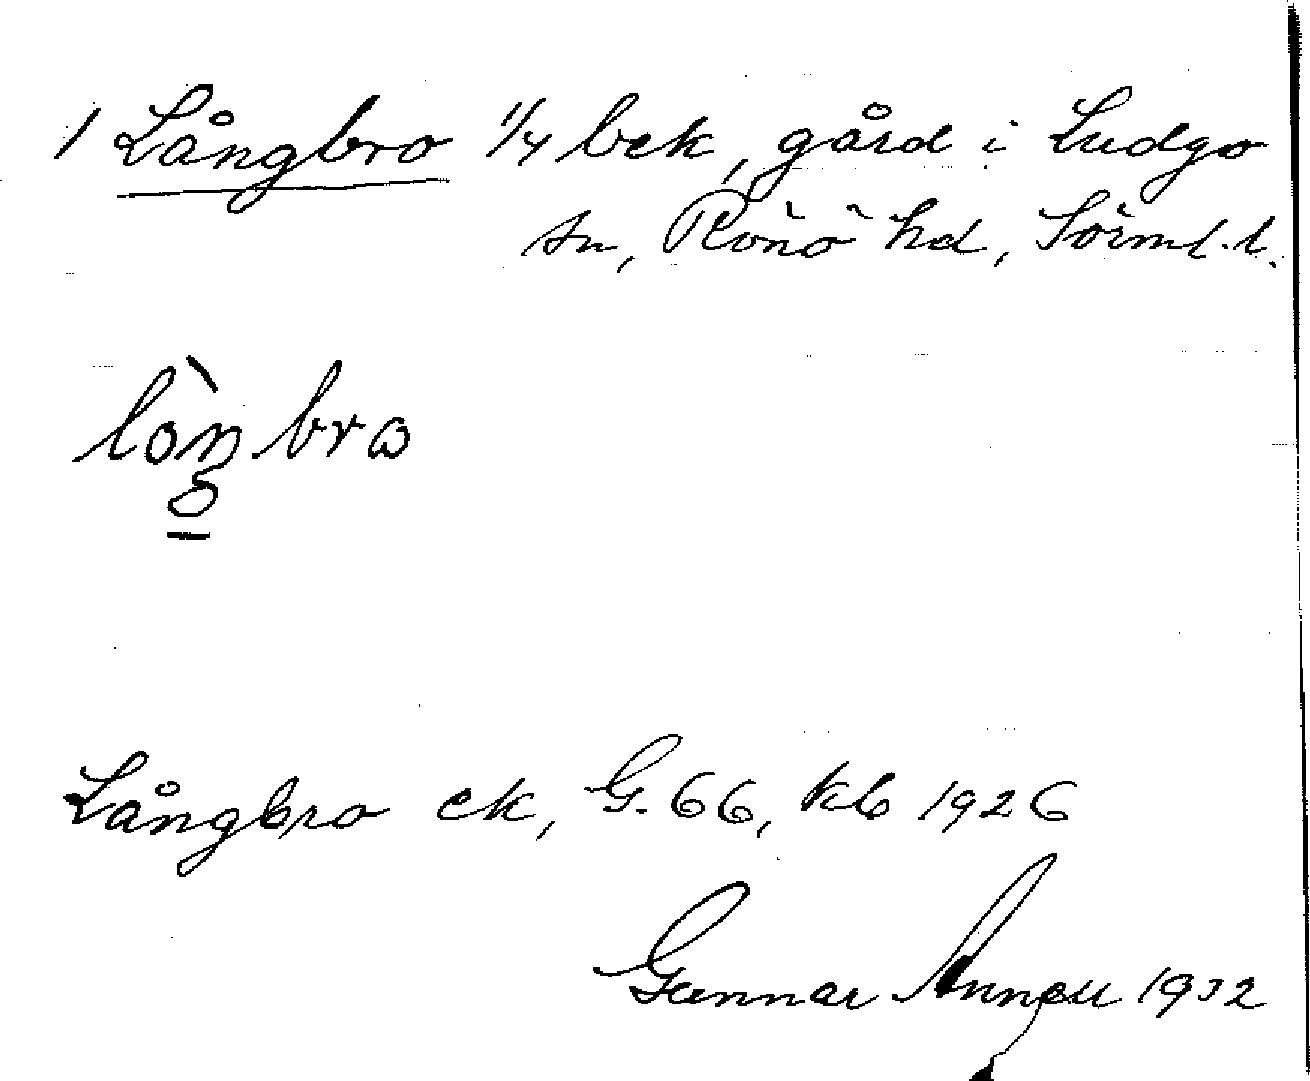 1 Långbro 1/4 bek, gård i Ludgo
sn, Rönö hd, Sörml. l.
Långbro ek, G. 66, kb 1926
Gunnar 1932